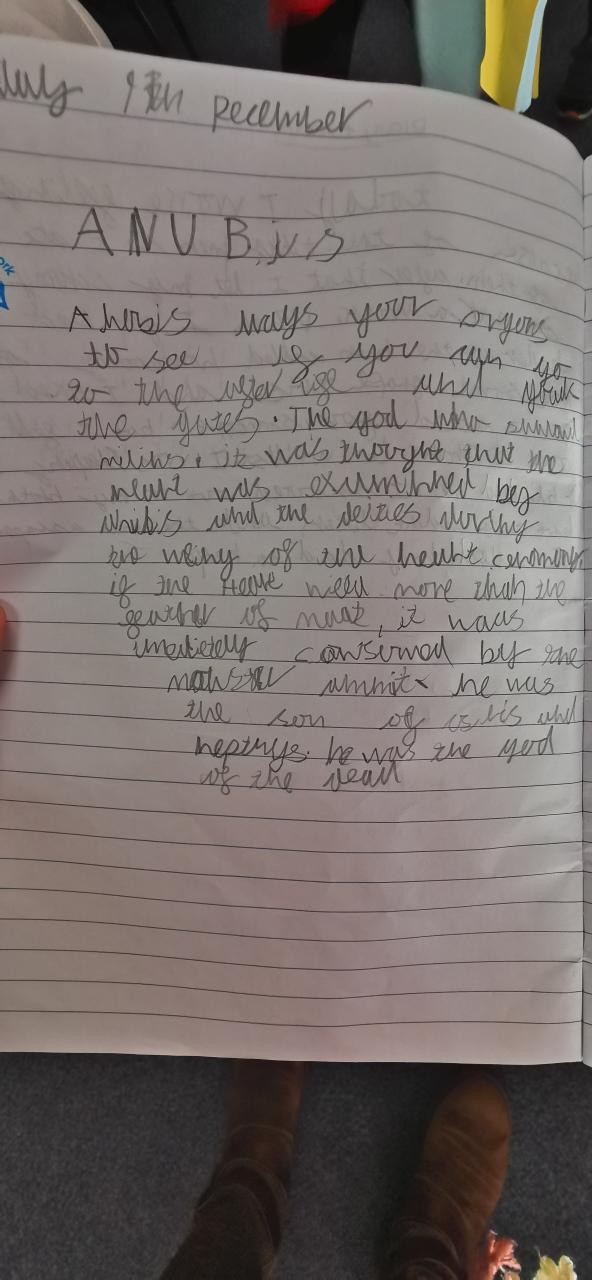 9th December
ANUBis
Anubis ways your orgons
to see if you can go
to the after life and
the gates. The god who
it was thought that the
heart was examinhed bey
Anubis and the deites
weing of the heart ceromony.
if the heart more than the
feather of maat, it waas
imedietely consumed by the
monster ammit he was
the son of osiris and
nepthys. he was the god
of the dead